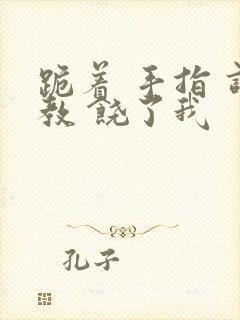 跪着 手指
教 饶了我
孔子